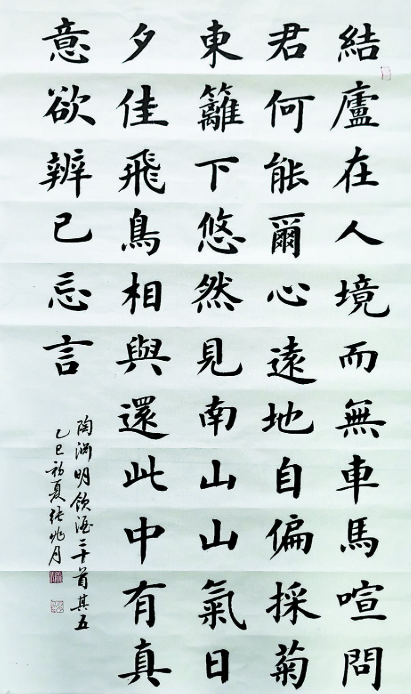 結廬在人境而無車馬喧問
君何能爾心遠地自偏採菊
東籬下悠然見南山山氣日
夕佳飛鳥相與還此中有真
意欲辨已忘言
陶淵明飲酒二十首其五
乙巳初夏張兆月